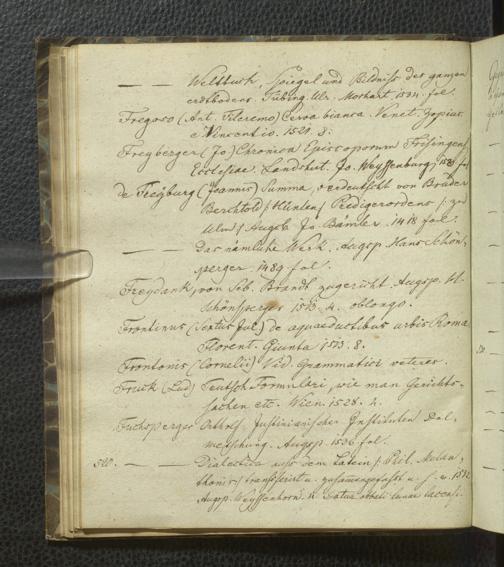 — — Weltbuch, Spiegel und Bildniß des ganzen
erdtbodens. Tübing. Ulr. Morhart. 1534. fol.
Fregoso (Ant. Fileremo) Cerva bianca. Venet. Zopino
e Vincentio. 1521. 8.
Freyberger (Jo) Chronica Episcoporum Frisingens
Ecclesiae. Landshut. Jo. Weyssenburg.
de Freyburg (Joannis) Summa, verdeutscht von Bruder
Berchtold / Hünlen / Predigerordens /: zu
Ulm / Augsb. Jo. Bämler. 1418 fol.
— — Das nämliche Werk. Augsp. Hans Schön-
sperger. 1489. fol.
Freydank, von Seb. Brandt zugericht. Augsp. H.
Schönsperger 1513. 4. oblongo.
Frontinus (Sextus Jul) de aquaeductibus urbis Roma
Florent. Giunta 1513. 8.
Frontonis (Cornelii) Vid. Grammatici veteres.
Fruck (Lud) Teutsch Formulari, wie man Gerichts-
sachen etc. Wien. 1528. 4.
Fuchsperger Ortholf. Justinianischer Instituten Dol-
metschung. Augsp. 1536. fol.
520. — — Dialectica aus dem Latein /: Phil. Melan-
thonis / transferirt u. zusamengefasst u.
Augsp. Weyssenhorn. 4.